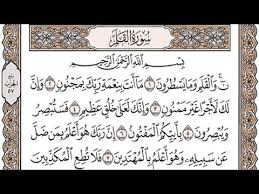 سُورَةُ القَلَمِ
بِسْمِ ٱللَّهِ ٱلرَّحْمَٰنِ ٱلرَّحِيمِ
نٓ وَٱلْقَلَمِ وَمَا يَسْطُرُونَ ١ مَآ أَنتَ بِنِعْمَةِ رَبِّكَ بِمَجْنُونٍ ٢ وَإِنَّ
لَكَ لَأَجْرًا غَيْرَ مَمْنُونٍ ٣ وَإِنَّكَ لَعَلَىٰ خُلُقٍ عَظِيمٍ ٤ فَسَتُبْصِرُ
وَيُبْصِرُونَ ٥ بِأَييِّكُمُ ٱلْمَفْتُونُ ٦ إِنَّ رَبَّكَ هُوَ أَعْلَمُ بِمَن ضَلَّ
عَن سَبِيلِهِۦ وَهُوَ أَعْلَمُ بِٱلْمُهْتَدِينَ ٧ فَلَا تُطِعِ ٱلْمُكَذِّبِينَ